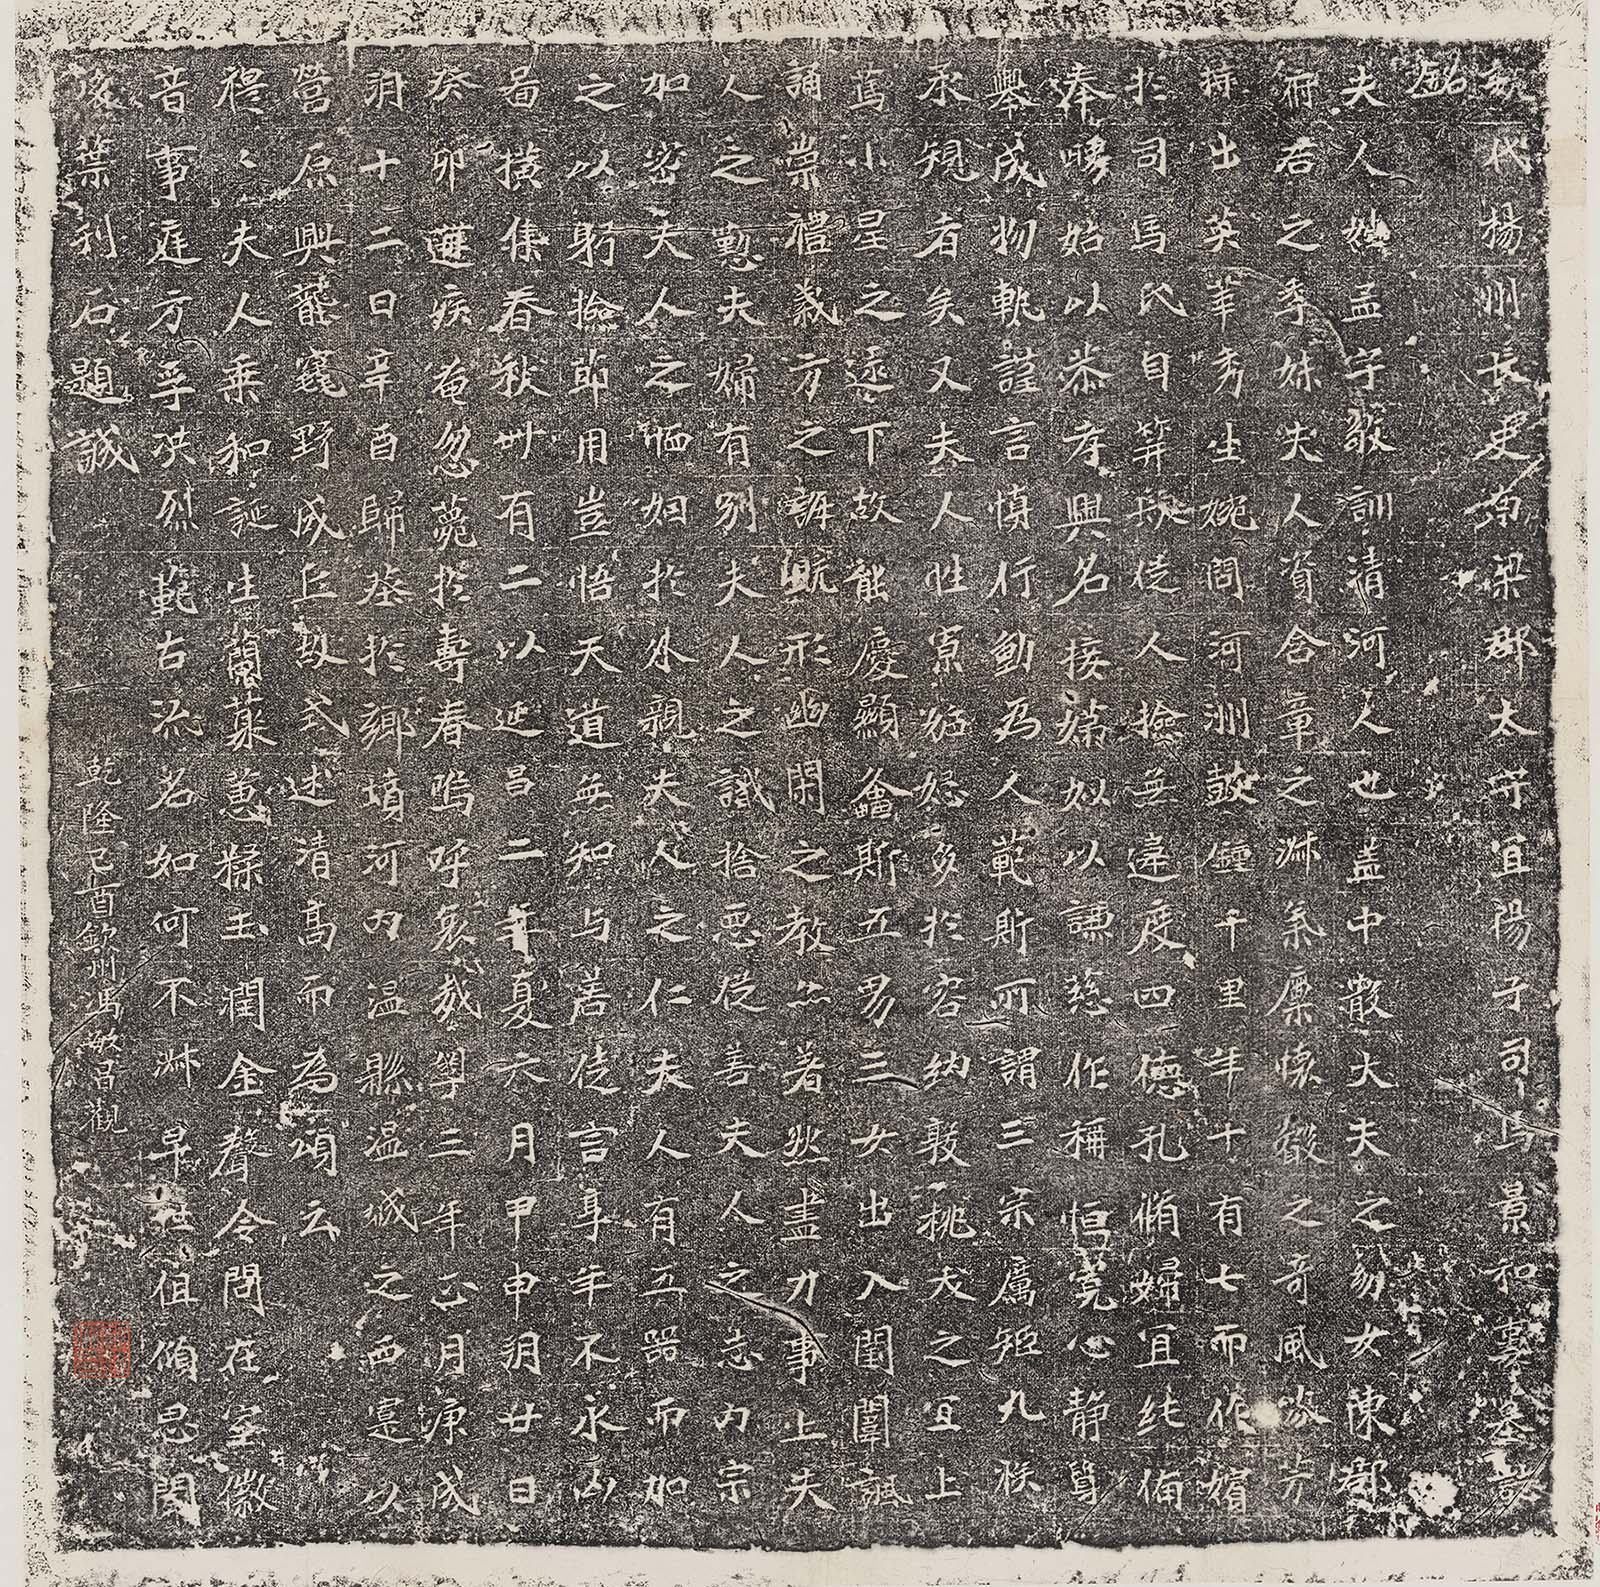 魏代揚州長史南梁郡太守宜陽子司馬景和妻墓誌
銘
夫人姓孟字敬訓清河人也盖中散大夫之幼女陳郡
府君之季妹夫人資含章之淑氣稟懷叡之奇風芬芳
特出英華秀生婉問河洲鼓鍾千里年十有七而作嬪
於司馬氏自笄髮從人撿無違度四德孔脩婦宜純備
奉舅姑以恭孝興名接娣姒以謙慈作稱恒寬心静質
舉成物軌謹言慎行動為人範斯所謂三宗厲矩九族
承規者矣又夫人性寡妬忌多於容納敦桃夭之宜上
篤小星之逐下故能慶顯螽斯五男三女出入閨闈諷
誦崇禮義方之誨既形幽閑之教亦著然盡力事上夫
人之懃夫婦有別夫人之識捨惡從善夫人之志內宗
加密夫人之恤姻於外親夫人之仁夫人有五器而加
之以躬撿節用豈悟天道無知与善徒言享年不永凶
啚橫集春秋卌有二以延昌二年夏六月甲申朔廿日
癸卯遘疾奄忽薨於壽春嗚呼哀哉粵三年正月庚戌
朔十二日辛酉歸塟於鄉墳河內溫縣溫城之西寔以
營原興壟窆野成丘故式述清高而為頌云
穆〻夫人乘和誕生蘭菓蕙糅玉潤金聲令問在室徽
音事庭方孚洪烈範古流名如何不淑早世徂傾思聞
後葉刋石題誠
乾隆己酉欽州馮敏昌觀